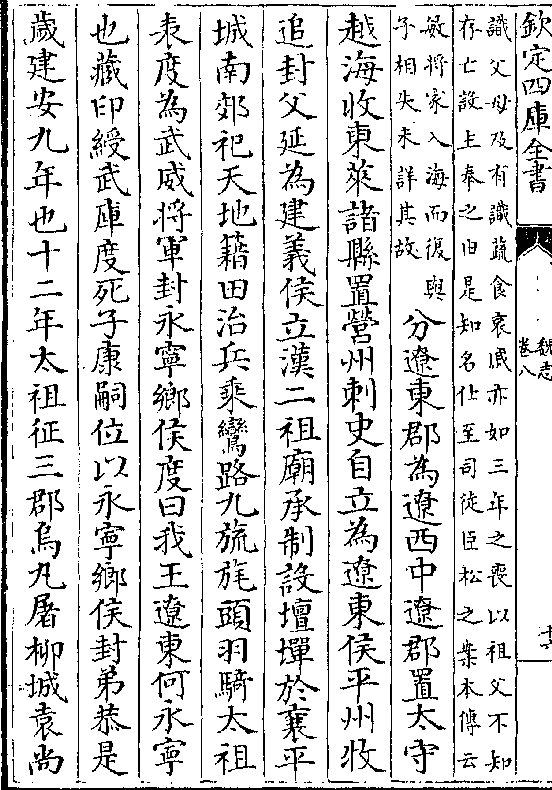 欽定四庫全書
魏志
卷八
識父母及有識蔬食哀戚亦如三年之喪以祖父不知
存亡設主奉之由是知名仕至司徒臣松之案本傳云
敏將家入海而復與
子相失未詳其故
分遼東郡為遼西中遼郡置太守
越海收東萊諸縣置營州刺史自立為遼東侯平州牧
追封父延為建義侯立漢二祖廟承制設壇墠於襄平
城南郊祀天地藉田治兵乘鸞路九旒旄頭羽騎太祖
表度為武威將軍封永寧鄉侯度曰我王遼東何永寧
也藏印綬武庫度死子康嗣位以永寧鄉侯封弟恭是
歲建安九年也十二年太祖征三郡烏丸屠柳城袁尚